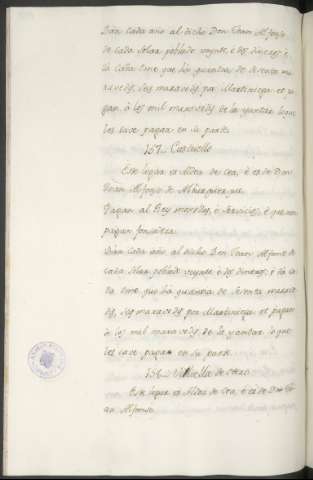 Dan cada año al dicho Don Juan Alfonso
de cada solar poblado veynte, è dos dineros; è
la Caña que ha quantia de setenta ma
ravedis, seis maravedis por Martiniega et pa
gan à los mil maravedis de la yantar lo que
les cave pagar en su parte.
157 Castrillo
Este logar es Aldea de Cea, è es de Don
Juan Alfonso de Alburquerque.
Pagan al Rey monedas, è servicios, è que non
pagan fonsadera.
Dan cada año al dicho Don Juan Alfonso de
cada solar poblado veynte, è dos dineros, è la ca
ña que ha quantia de setenta marave
dis, seis maravedis por Martiniega et pagan
à los mil maravedis de la yantar lo que
les cave pagar en su parte.
158 de Cea
Este logar es Aldea de Cea, è es de Don Ju
an Alfonso.